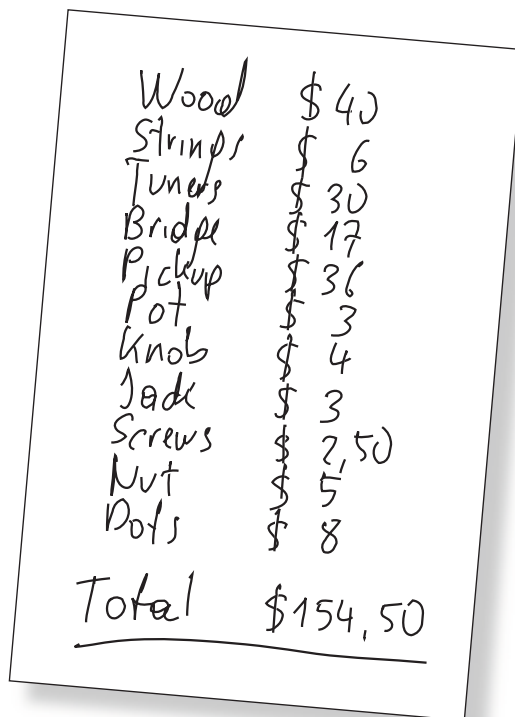 Wood $ 40
Strings $ 6
Tuners $ 30
Bridge $ 17
Pickup $ 36
Pot $ 3
Knob $ 4
Jack $ 3
Screws $ 2,50
Nut $ 5
Dots $ 8
Total $154,50